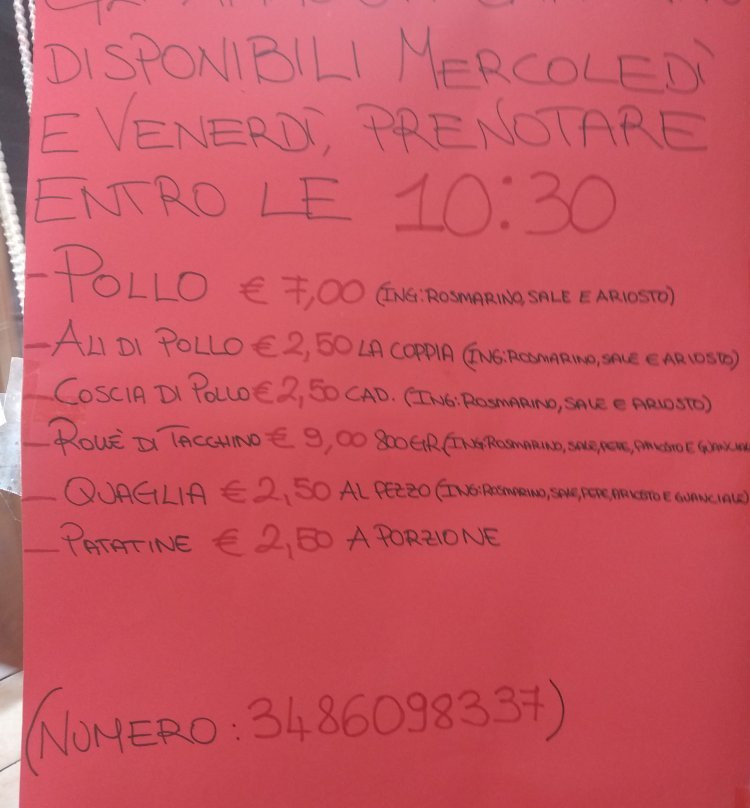 DISPONIBILI MERCOLEDÌ
E VENERDÌ, PRENOTARE
ENTRO LE 10:30
- POLLO € 7,00 (ING: ROSMARINO, SALE E ARIOSTO)
- ALI DI POLLO € 2,50 LA COPPIA (ING: ROSMARINO, SALE E ARIOSTO)
- COSCIA DI POLLO € 2,50 CAD. (ING: ROSMARINO, SALE E ARIOSTO)
- ROLLÈ DI TACCHINO € 9,00 800GR (ING: ROSMARINO, SALE, PEPE, ARIOSTO E GUANCIALE
- QUAGLIA € 2,50 AL PEZZO (ING: ROSMARINO, SALE, PEPE, ARIOSTO E GUANCIALE)
- PATATINE € 2,50 A PORZIONE
(NUMERO: 3486098337)